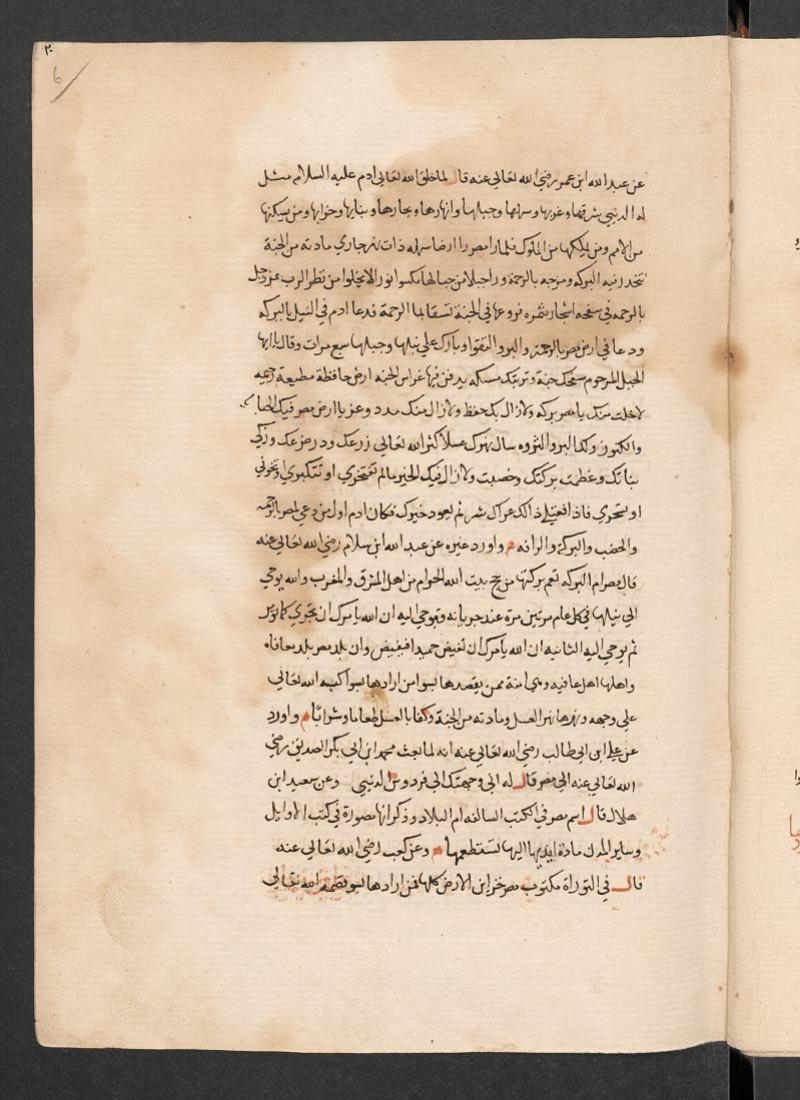 ٢٠
6
عن عبد الله ابن عمر رضي الله تعالى عنه قال لما خلق الله تعالى ادم عليه السلام مثل
له الدنيي شرقها وغربها وسهلها وجبلها وانهارها وبحارها وبنايها وخرابها ومن يسكنها
من الامم ومن يملكها من الملوك فلما را مصر را ارضا سهله ذات نهر جاري مادته من الجنة
تنحدر فيه البركه ومزجه بالرحمة ورا جبلا من جبالها مكسوا نورا لا يخلوا من نظر الرب عز وجل
بالرحمه في سفحه اشجار مثمره فروعها في الجنة تسقا بما الرحمة فدعا ادم في النيل بالبركه
ودعا في ارض مصر بالرحمة والبر والتقوا وبارك علي نيلها وجبلها سبع مرات وقال يا ايها
الجبل المرحوم سفحك جنة وتربتك مسكه يدفن فيها غراس الجنه ارض حافظة مطيعة رحيمه
لا خلت منك يا مصر بركه ولا زال بك حفظ ولا زال منك مدد وعز يا ارض مصر فيك الخبايا
والكنوز ولك البر والثروه سال نهرك عسلا كثر الله تعالى زرعك ودر ضرعك وزكي
نباتك وعظمت بركتك وخصبت ولا زال فيك الخير مالم تفتخري او تتكبري او تخوني
او تتجري فاذا فعلتي ذالك عراك شر ثم يعود خيرك فكان ادم اول من دعي لمصر بالرحمه
والخصب والبركة والرافه واورد غيره عن عبد الله ابن سلام رضي الله تعالى عنه
قال مصر ام البركه تعم بركتها من حج بيت الله الحرام من اهل المشرق والمغرب والله يوحي
الي نيلها في كل عام مرتين مرة عند جريانه فيوحي اليه ان الله يامرك ان تجري كما تؤمر
ثم يوحي اليه الثانيه ان الله يامرك ان تفيض حميدا فيفيض وان بلد مصر بلد معافاه
واهلها اهل عافيه وهي امنة ممن يقصدها بسوا من ارادها بسوا كبه الله تعالى
على وجهه ونهرها نهر العسل ومادته من الجنة وكفا بالعسل طعاما وشرابا واورد
عن علي ابن ابي طالب رضي الله تعالى عنه انه لما بعث محمد ابن ابي بكر الصديق رضي
الله تعالى عنه الى مصر قال له اني وجهتك الى فردوس الدنيي وعن سعيد ابن
هلال قال اسم مصر في الكتب السالفه ام البلاد وذكر انها مصورة في كتب الاوايل
وساير المدن مادة ايديها اليها تستطعمها وعن كعب رضي الله تعالى عنه
قال في التوراة مكتوب مصر خزاين الارض كلها فمن ارادها بسو قصمه الله تعالى